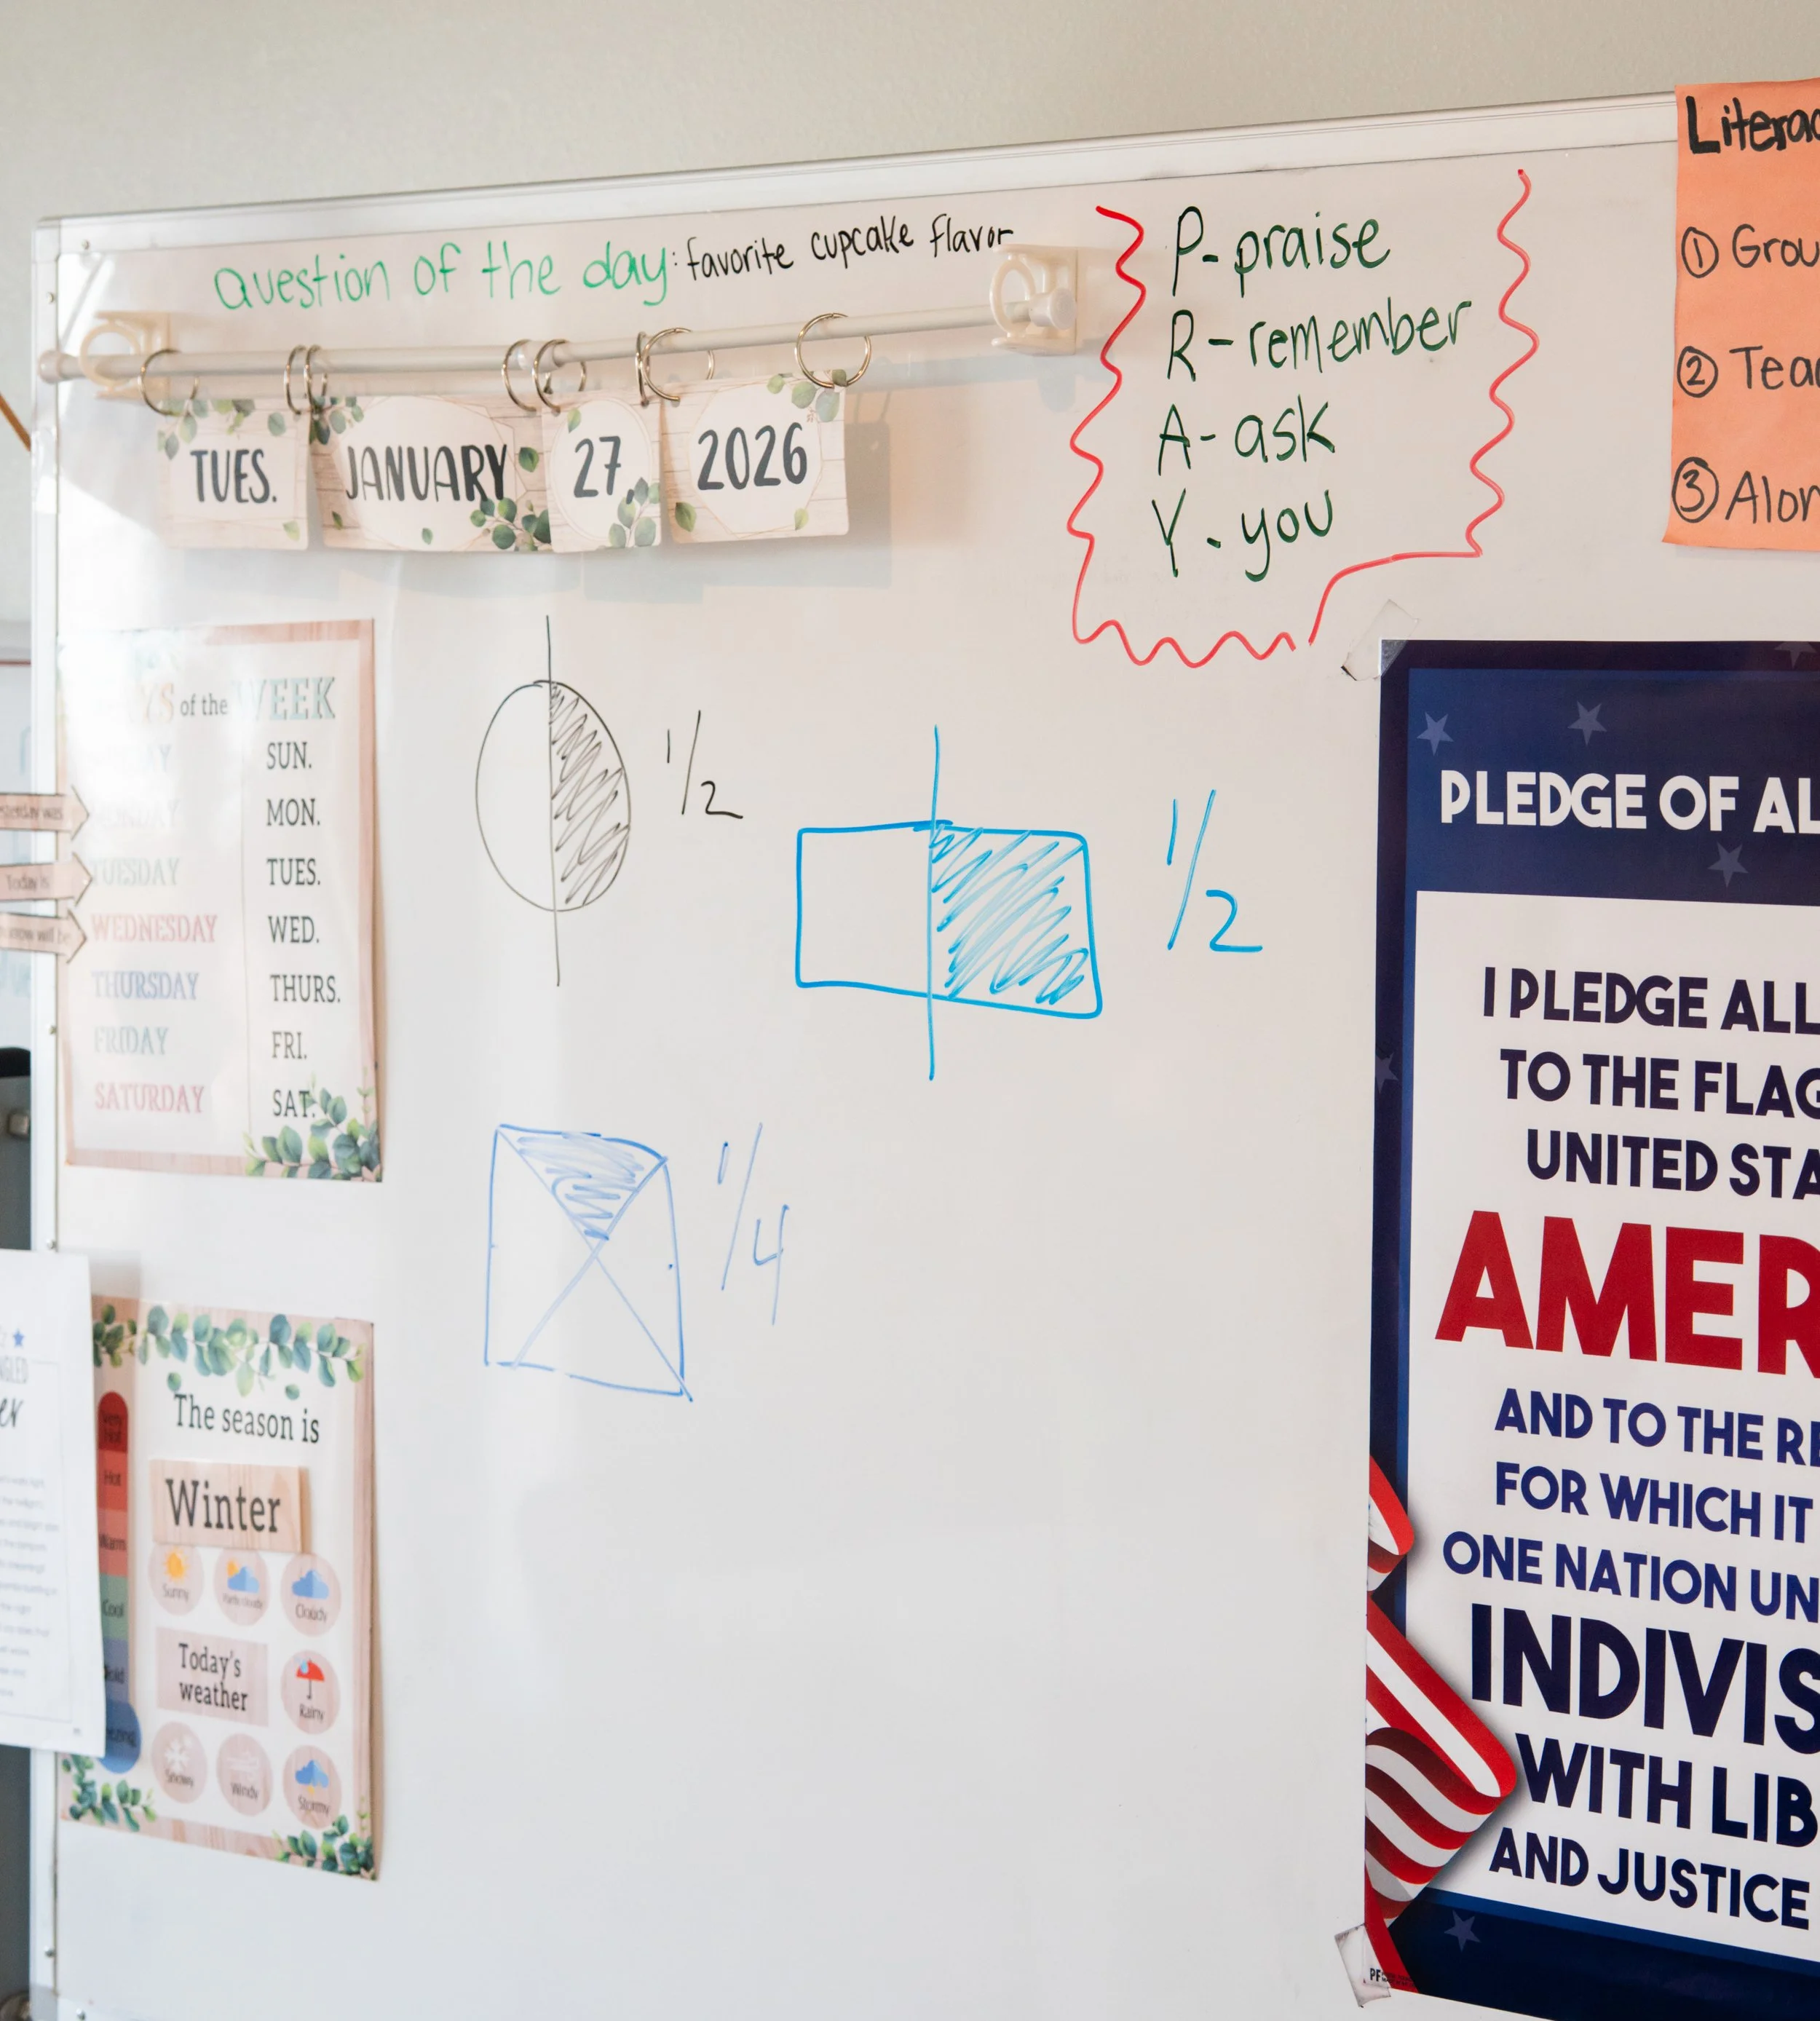 Question of the day: favorite cupcake flavor
TUES. JANUARY 27, 2026
P-praise
R-remember
A-ask
Y-you
① Grou
② Tea
③ Alon
of the WEEK
SUN.
MONDAY MON.
TUESDAY TUES.
WEDNESDAY WED.
THURSDAY THURS.
FRIDAY FRI.
SATURDAY SAT.
Today is
1/2
1/2
1/4
The season is
Winter
Sunny
Cloudy
Today's
weather
Rainy
Snowy
Windy
Stormy
Hot
Warm
Cool
PLEDGE OF AL
I PLEDGE ALL
TO THE FLAG
UNITED STA
AMER
AND TO THE RE
FOR WHICH IT
ONE NATION UN
INDIVIS
WITH LIB
AND JUSTICE